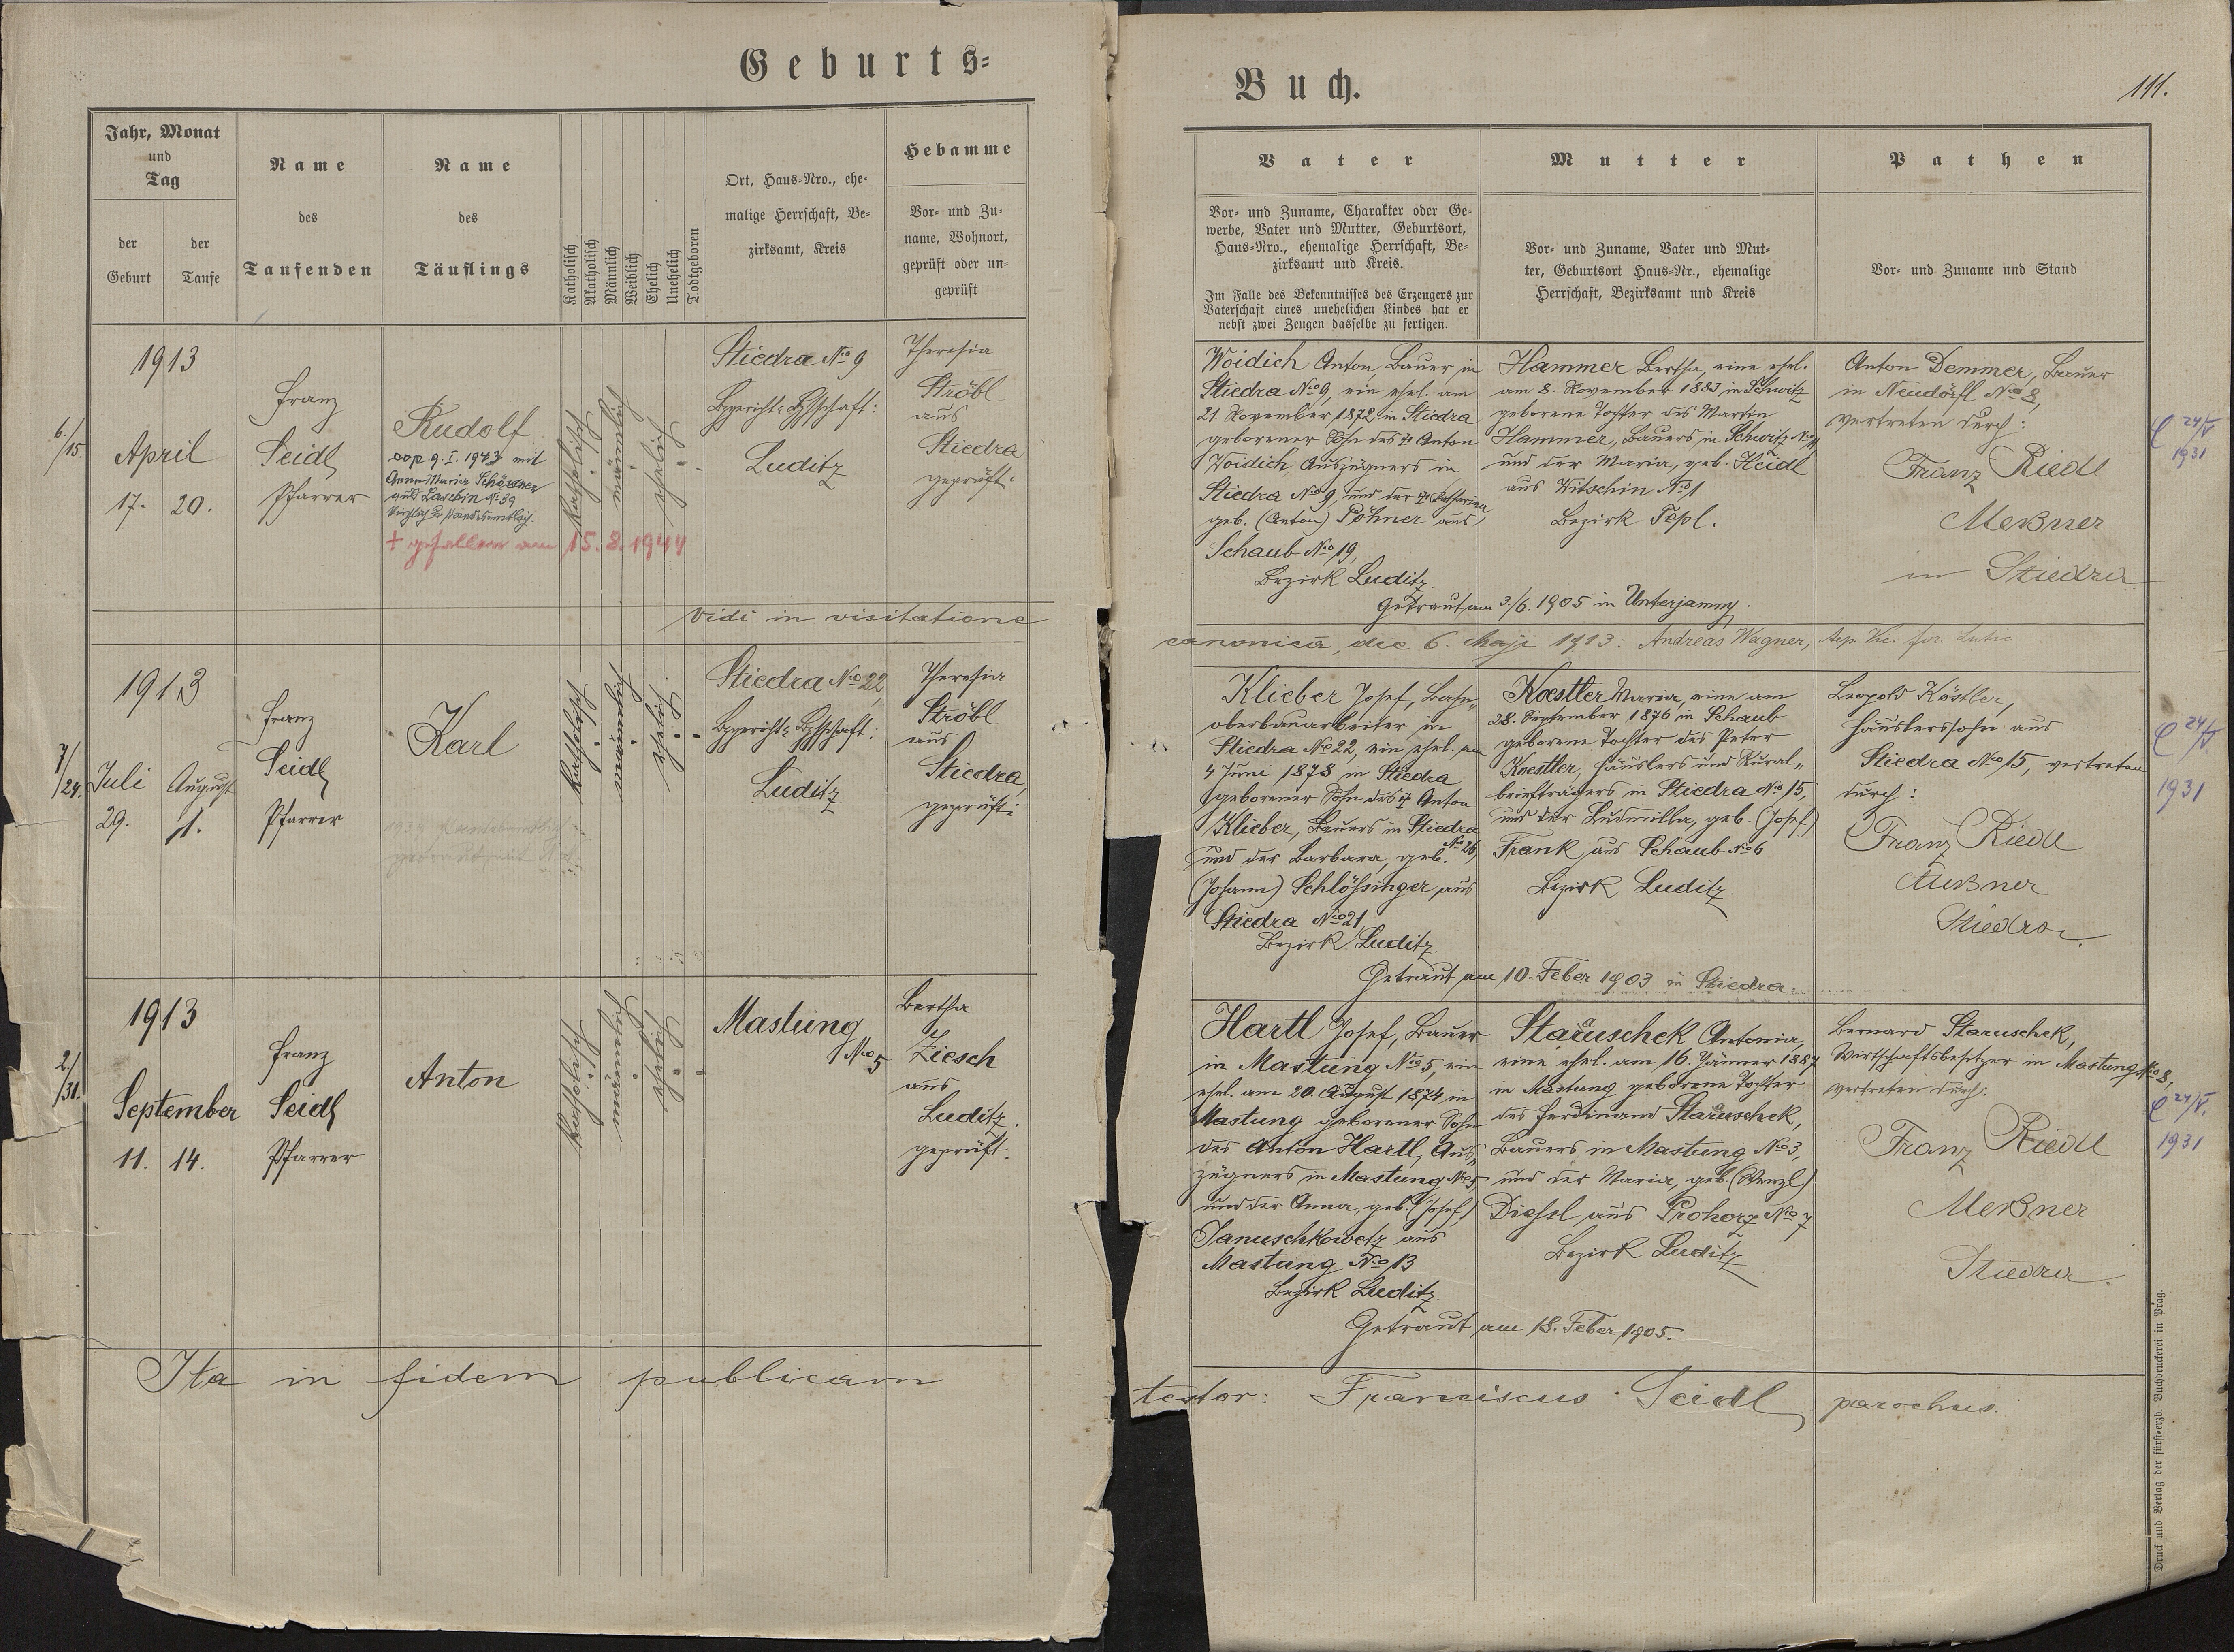 Geburts=
Jahr, Monat
und
Tag
der
Geburt
der
Taufe
Name
des
Taufenden
Name
des
Täuflings
Katholisch
Akatholisch
Männlich
Weiblich
Ehelich
Unehelich
Todtgeboren
Ort, Haus=Nro., ehe=
malige Herrschaft, Be=
zirksamt, Kreis
Hebamme
Vor= und Zu=
name, Wohnort,
geprüft oder un=
geprüft
6./15.
1913
April
17. 20.
Franz
Seidl
Pfarrer
Rudolf
cop 9. I. 1943 mit
Anna Maria
aus Laschin No 39
+ gefallen am 15. 8. 1944
katholisch
männlich
ehelich
Stiedra No 9
Luditz
Theresia
Ströbl
aus
Stiedra
geprüft.
Vidi in visitatione
7/24.
1913
Juli August
29. 1.
Franz
Seidl
Pfarrer
Karl
katholisch
männlich
ehelich
Stiedra No 22,
Luditz
Theresia
Ströbl
aus
Stiedra,
geprüft.
2./31.
1913
September
11. 14.
Franz
Seidl
Pfarrer
Anton
katholisch
männlich
ehelich
Mastung
No 5
Bertha
Ziesch
aus
Luditz,
geprüft.
Ita in fidem publicam
Buch.
111.
Vater
Vor= und Zuname, Charakter oder Ge=
werbe, Vater und Mutter, Geburtsort,
Haus=Nro., ehemalige Herrschaft, Be=
zirksamt und Kreis.
Im Falle des Bekenntnisses des Erzeugers zur
Vaterschaft eines unehelichen Kindes hat er
nebst zwei Zeugen dasselbe zu fertigen.
Mutter
Vor= und Zuname, Vater und Mut=
ter, Geburtsort Haus=Nr., ehemalige
Herrschaft, Bezirksamt und Kreis
Pathen
Vor= und Zuname und Stand
Woidich Anton, Bauer in
Stiedra No 9, ein ehel. am
21. November 1872 in Stiedra
geborener Sohn des + Anton
Woidich, Auszügners in
Stiedra No 9, und der + Katharina
geb. (Anton) Pöhner aus
Schaub No 19,
Bezirk Luditz.
Hammer Bertha, eine ehel.
am 8. November 1883 in Schwitz
geborene Tochter des Martin
Hammer, Bauers in Schwitz No 11
und der Maria, geb. Heidl
aus Witschin No 1
Bezirk Tepl.
Anton Demmer, Bauer
in Neudörfl No 8,
vertreten durch:
Franz Riedl
Meßner
in Stiedra
24/V.
1931
Getraut am 3./6. 1905 in Unterjamny.
canonica, die 6. Maji 1913: Andreas Wagner,
Klieber Josef, Bahn„
oberbauarbeiter in
Stiedra No 22, ein ehel. am
4. Juni 1878 in Stiedra
geborener Sohn des + Anton
Klieber, Bauers in Stiedra
No 26,
und der Barbara, geb.
(Johann) Schlössinger aus
Stiedra No 21
Bezirk Luditz.
Koestler Maria, eine am
28. September 1876 in Schaub
geborene Tochter des Peter
Koestler, Häuslers und Rural„
briefträgers in Stiedra No 15,
und der Ludmilla, geb. (Josef)
Frank aus Schaub No 6
Bezirk Luditz.
Leopold Köstler,
Häuslerssohn aus
Stiedra No 15, vertreten
durch:
Franz Riedl
Meßner
Stiedra.
24/V.
1931
Getraut am 10. Feber 1903 in Stiedra.
Hartl Josef, Bauer
in Mastung No 5, ein
ehel. am 20. August 1874 in
Mastung geborener Sohn
des Anton Hartl, Aus„
zügners in Mastung No 5,
und der Anna, geb. (Josef)
Januschkowetz aus
Mastung No 13
Bezirk Luditz.
Staruschek Antonia,
eine ehel. am 16. Jänner 1887
in Mastung geborene Tochter
des Ferdinand Staruschek,
Bauers in Mastung No 3,
und der Maria, geb. (Wenzl)
Diessl aus Prohorz No 7
Bezirk Luditz
Bernard Staruschek,
Wirtschaftsbesitzer in Mastung No 8,
vertreten durch:
Franz Riedl
Meßner
Stiedra.
24/V.
1931
Getraut am 18. Feber 1905.
testor: Franciscus Seidl parochus.
Druck und Verlag der fürst=erzb. Buchdruckerei in Prag.